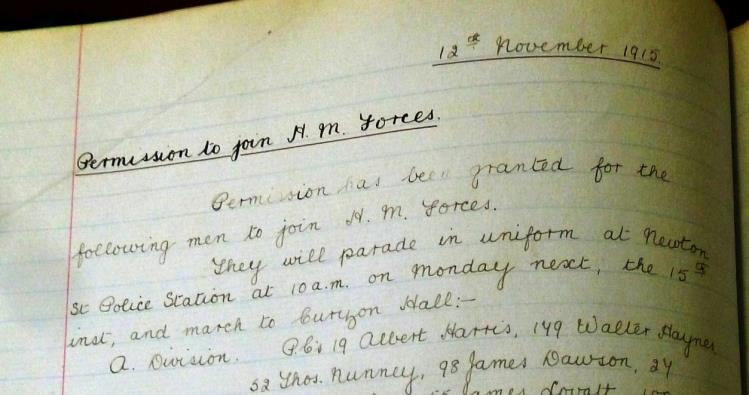 12th November 1915.
Permission to join H. M. Forces.
Permission has been granted for the
following men to join H. M. Forces.
They will parade in uniform at Newton
St Police Station at 10 a.m. on Monday next, the 15th
inst, and march to Curzon Hall:-
A. Division. P.C's 19 Albert Harris, 149 Walter Haynes
52 Thos. Nunney, 98 James Dawson, 24
James Lovatt